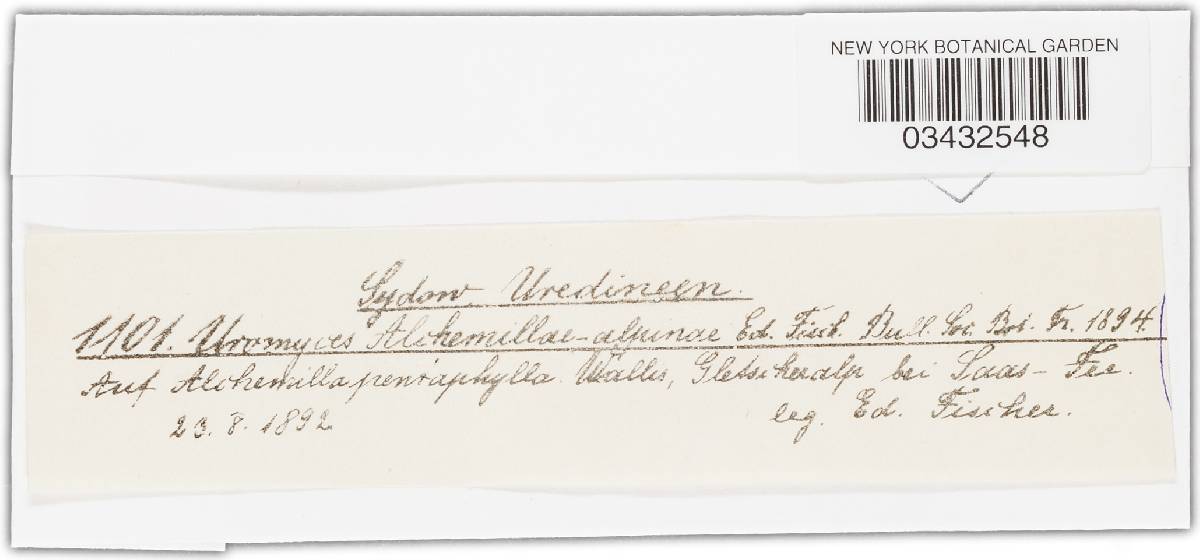 NEW YORK BOTANICAL GARDEN
03432548
Sydow Uredineen.
1101. Uromyces Alchemillae-alpinae Ed. Fisch. Bull. Soc. Bot. Fr. 1894.
Auf Alchemilla pentaphylla. Wallis, Gletscheralp bei Saas-Fee.
23. 8. 1892 leg. Ed. Fischer.